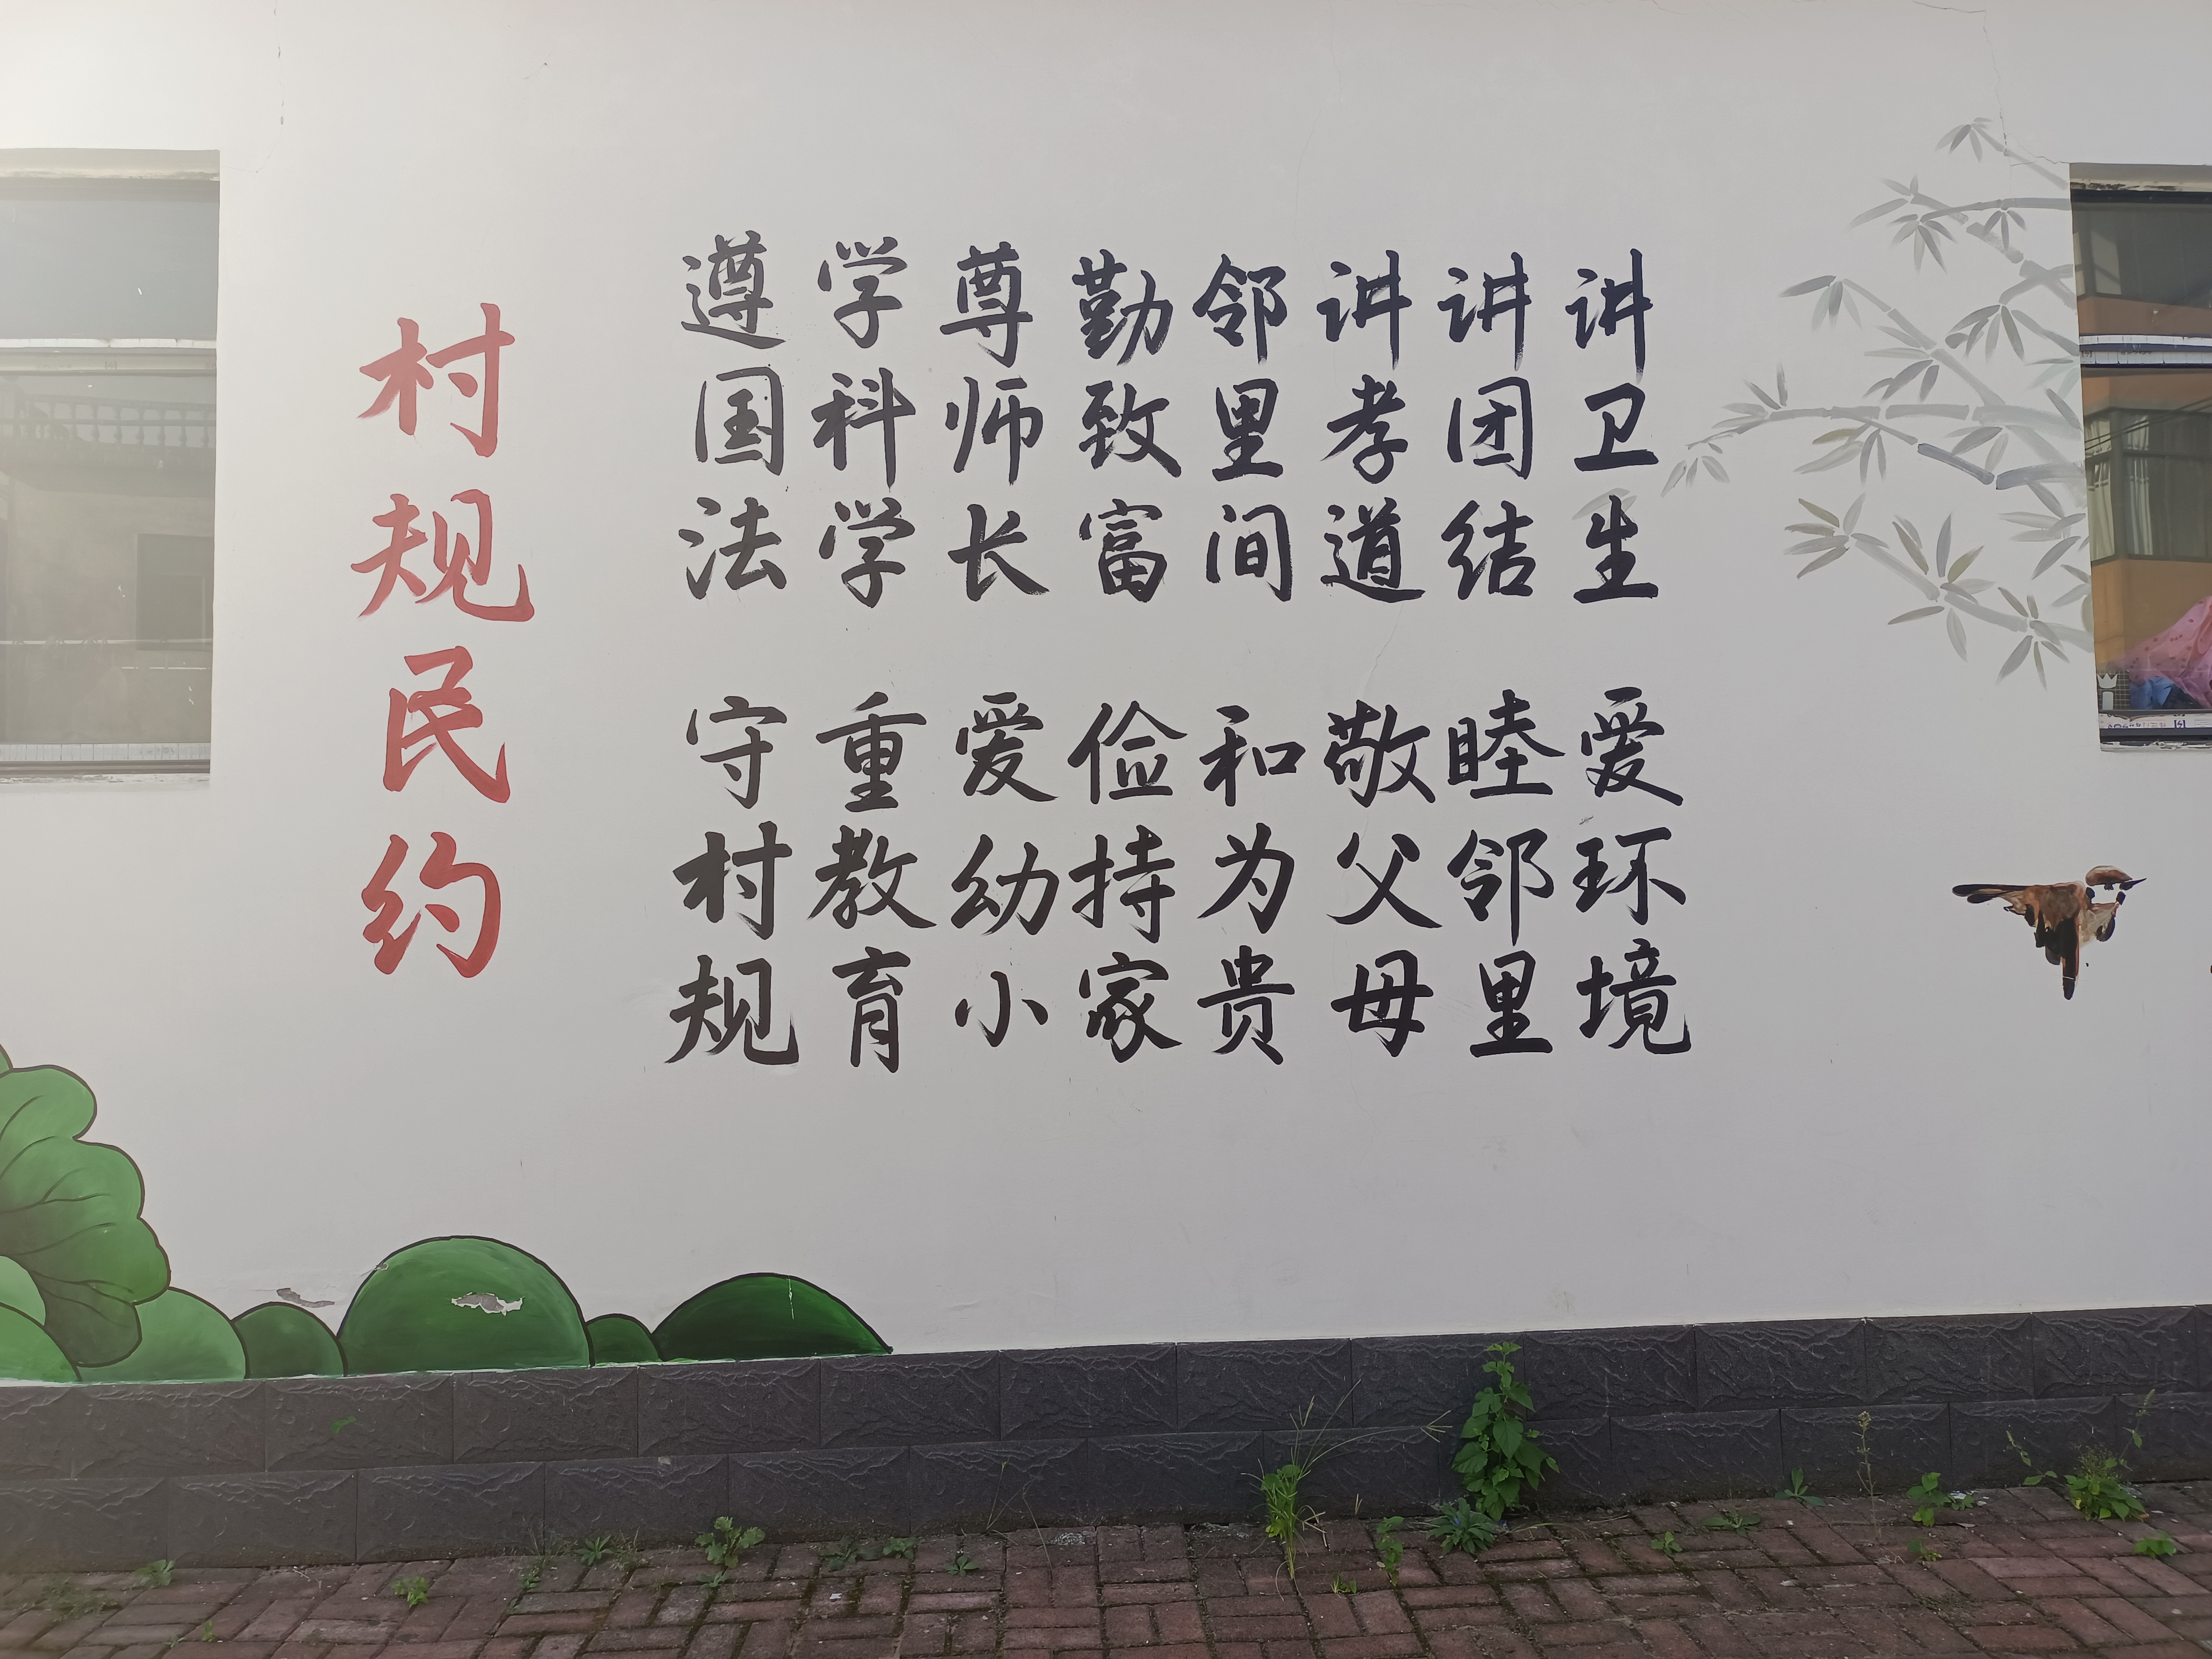 村规民约
遵国法 守村规
学科学 重教育
尊师长 爱幼小
勤致富 俭持家
邻里间 和为贵
讲孝道 敬父母
讲团结 睦邻里
讲卫生 爱环境